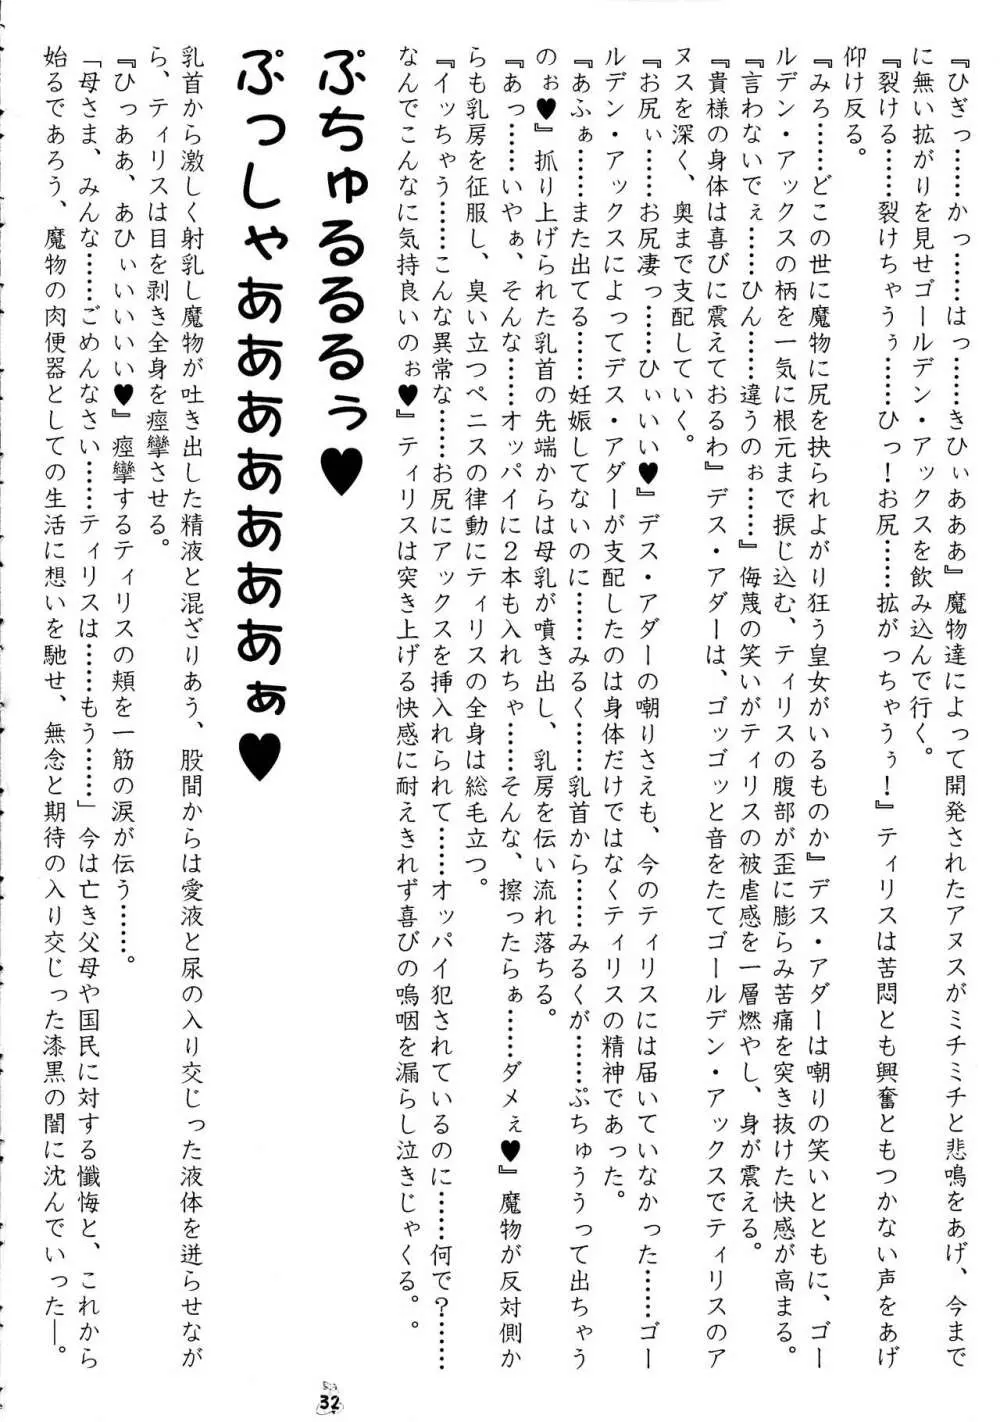 『ひぎっ……かっ……はっ……きひぃあああ』魔物達によって開発されたアヌスがミチミチと悲鳴をあげ、今まで
に無い拡がりを見せゴールデン・アックスを飲み込んで行く。
『裂ける……裂けちゃうぅ……ひっ！お尻……拡がっちゃうぅ！』ティリスは苦悶とも興奮ともつかない声をあげ
仰け反る。
『みろ……どこの世に魔物に尻を抉られよがり狂う皇女がいるものか』デス・アダーは嘲りの笑いとともに、ゴー
ルデン・アックスの柄を一気に根元まで捩じ込む、ティリスの腹部が歪に膨らみ苦痛を突き抜けた快感が高まる。
『言わないでぇ……ひん……違うのぉ……』侮蔑の笑いがティリスの被虐感を一層燃やし、身が震える。
『貴様の身体は喜びに震えておるわ』デス・アダーは、ゴッゴッと音をたてゴールデン・アックスでティリスのア
ヌスを深く、奥まで支配していく。
『お尻ぃ……お尻凄っ……ひぃいい♥』デス・アダーの嘲りさえも、今のティリスには届いていなかった……ゴー
ルデン・アックスによってデス・アダーが支配したのは身体だけではなくティリスの精神であった。
『あふぁ……また出てる……妊娠してないのに……みるく……乳首から……みるくが……ぷちゅううって出ちゃう
のぉ♥』抓り上げられた乳首の先端からは母乳が噴き出し、乳房を伝い流れ落ちる。
『あっ……いやぁ、そんな……オッパイに２本も入れちゃ……そんな、擦ったらぁ……ダメぇ♥』魔物が反対側か
らも乳房を征服し、臭い立つペニスの律動にティリスの全身は総毛立つ。
『イッちゃう……こんな異常な……お尻にアックスを挿入れられて……オッパイ犯されているのに……何で？……
なんでこんなに気持良いのぉ♥』ティリスは突き上げる快感に耐えきれず喜びの嗚咽を漏らし泣きじゃくる。。
ぷちゅるるるぅ♥
ぷっしゃあああああああぁ♥
乳首から激しく射乳し魔物が吐き出した精液と混ざりあう、股間からは愛液と尿の入り交じった液体を迸らせなが
ら、ティリスは目を剥き全身を痙攣させる。
『ひっああ、あひぃいいいい♥』痙攣するティリスの頬を一筋の涙が伝う……。
「母さま、みんな……ごめんなさい……ティリスは……もう……」今は亡き父母や国民に対する懺悔と、これから
始るであろう、魔物の肉便器としての生活に想いを馳せ、無念と期待の入り交じった漆黒の闇に沈んでいった―。
32